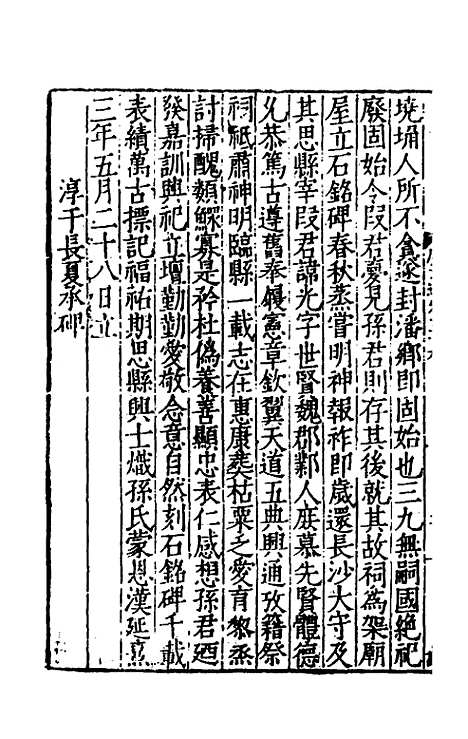 墝埆人所不貪遂封潘鄉即固始也三九無嗣國絶祀
廢固始令段君夢見孫君則存其後就其故祠為架廟
屋立石銘碑春秋蒸嘗明神報祚即歲還長沙大守及
其思縣宰段君諱光字世賢魏郡鄴人庶慕先賢體德
允恭篤古遵舊奉履憲章欽翼天道五典興通攷籍祭
祠祇肅神明臨縣一載志在惠康葬枯粟之愛育黎烝
討掃醜類鰥寡是矜杜偽養善顯忠表仁感想孫君廼
發嘉訓興祀立壇勤勤愛敬念意自然刻石銘碑千載
表績萬古標記福祐期思縣興士熾孫氏蒙恩漢延熹
三年五月二十八日立
淳于長夏承碑